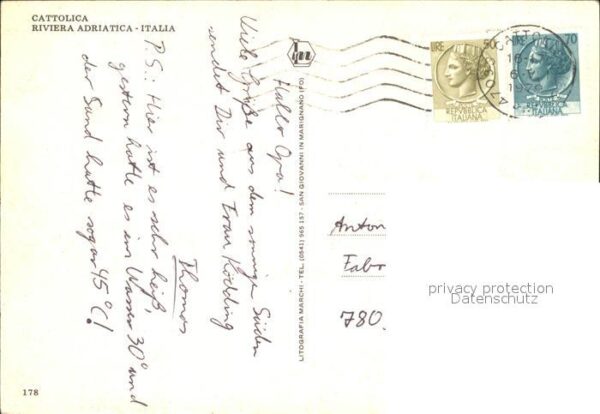 CATTOLICA
RIVIERA ADRIATICA - ITALIA
Hallo Opa!
Viele Grüße aus dem sonnigen Süden
sendet Dir und Frau Ködding
Thomas
P.S.: Hier ist es sehr heiß,
gestern hatte es im Wasser 30° und
der Sand hatte sogar 45°C!
178
LITOGRAFIA MARCHI - TEL. (0541) 965 157 - SAN GIOVANNI IN MARIGNANO (FO)
LIRE 50
REPVBBLICA
ITALIANA
70
REPVBBLICA
ITALIANA
CATTOLICA
Anton
Fabr
780.
privacy protection
Datenschutz